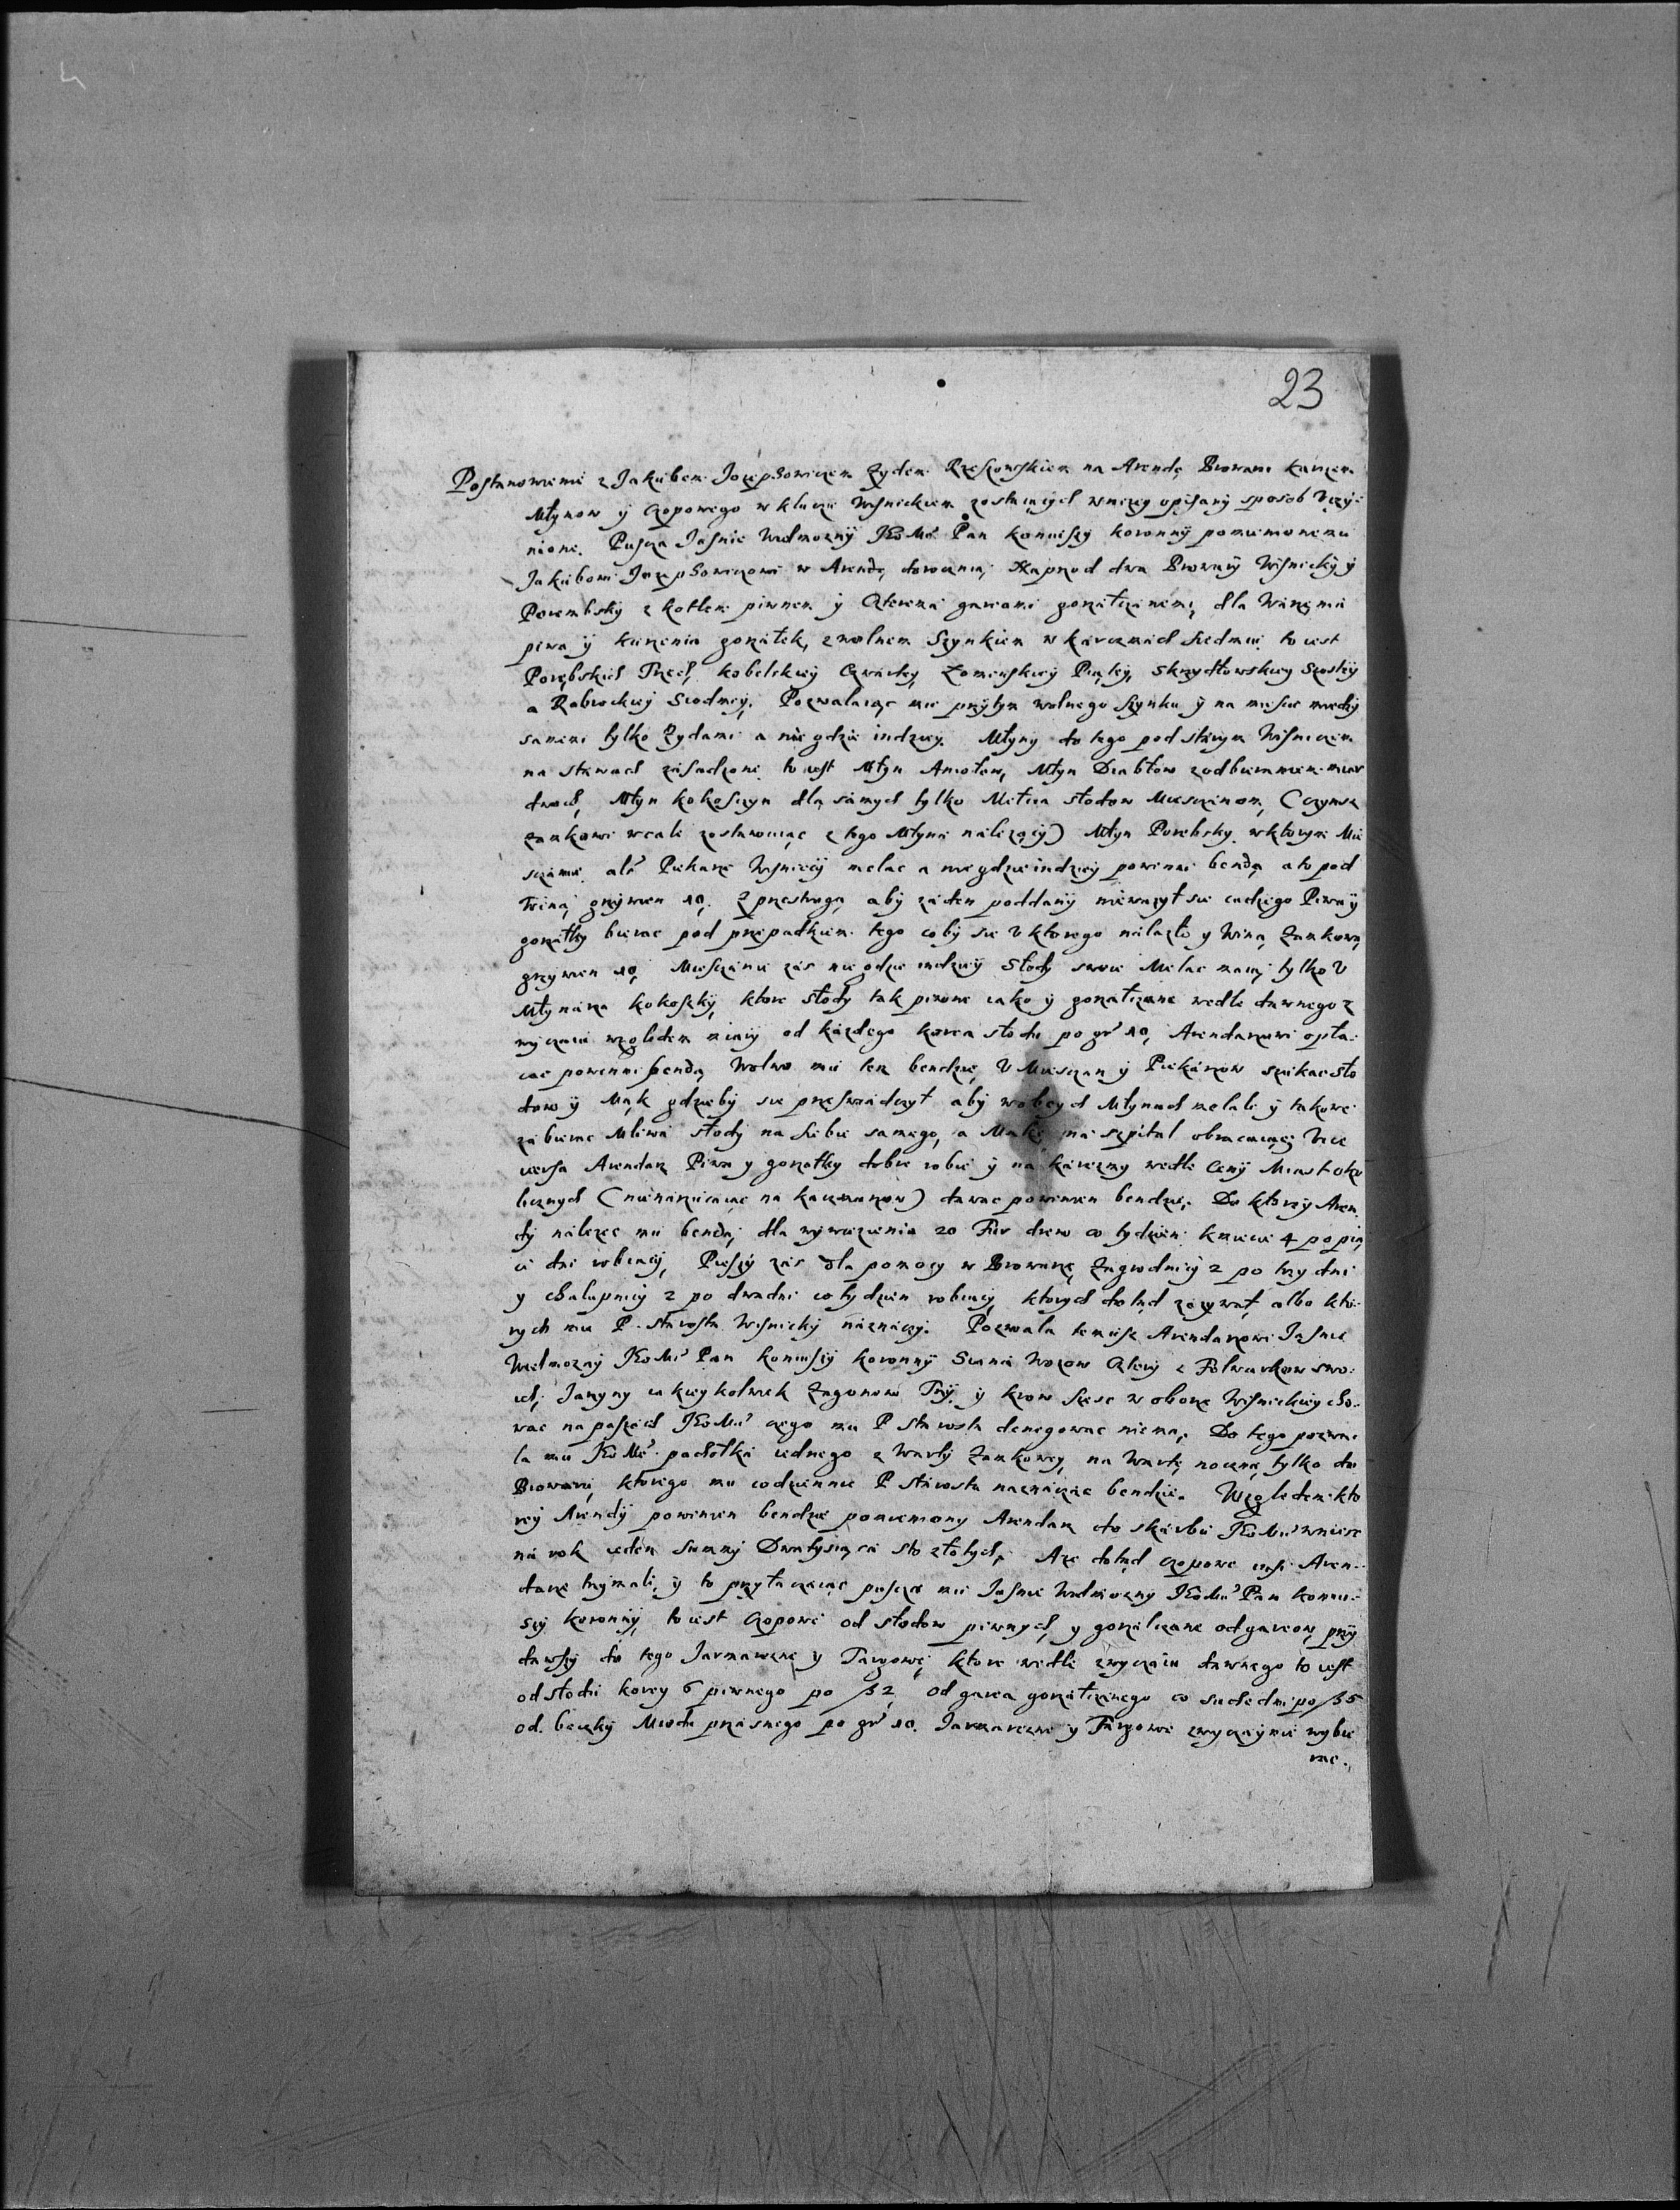 23
Postanowienie z Jakubem Jozephowiczem Zydem Rzeszowskiem na Arendę Browaru karczem
Młynow ÿ Czopowego w kluczu Wisnickiem zostaiących wniżey opisany sposob Vczy-
nione. Puscza Jasnie Wielmoznÿ JEo Mć Pan koniuszy koronnÿ pomienionemu
Jakubowi Jozephowiczowi w Arendę doroczną, Naprzod dwa Browary Wisnickÿ ÿ
Porembskÿ z kotłem piwnem ÿ Czterema garcami gorzałczanemi, dla Warzenia
piwa ÿ kurzenia gorzałek, z wolnem Szynkiem w karczmach Siedmiu to iest
Porębskich Trzech, kobelskiey Czwartey, Łomenskiey Piątey, Skrzydłowskiey Szostey
a Rabrockiey Siodmey, Pozwalaiąc mu przytym wolnego Szynku ÿ na miescie miedzÿ
samemi tylko Zydami a nie gdzie indziey. Młyny do tego pod starym Wisniczem
na stawach zasadzone to iest Młyn Aniołow, Młyn Diabłow z odbieraniem miar
dwoch, Młyn kokoszyn dla samych tylko Mełcia słodow Miesczanom, (czynsz
zamkowi wcale zostawuiąc z tego Młyna nalezącÿ) Młyn Porebsky w ktorym Mie
sczanie als Piekarze Wisniccÿ mełac a nie gdzieindziey powinni bendą a to pod
winą grzywien 10. Z przestrogą aby zaden poddanÿ niewazył sie cudzego Piwa ÿ
gorzałky bierac pod przepadkiem tego coby sie V ktorego nalazło y Winą Zamkową
grzywien 10, Miesczanie zas nie gdzie indziey Słody swoie Mełac maią tylko V
Młynarza kokoszkÿ, ktore słody tak piwne iako ÿ gorzałczane wedle dawnego z
wyczaiu względem miarÿ od kazdego korca słodu po gr 10, Arendarzowi opła-
cac powinni bendą, Wolno mu tez bendzie, V Miesczan ÿ Piekarzow szukac sło
dow ÿ Mąk gdzieby sie przeswiadczył aby w obcych Młynach mełali ÿ takowe
zabierac Mliwa słody na siebie samego, a Mąkę na szpital obracaiąc, Vice
versa Arendarz Piwa y gorzałky dobre robic ÿ na karczmy wedle Cenÿ Miast oko
licznych (nienarzucaiąc na karczmarzow) dawac powinien bendzie. Do ktoreÿ Aren-
dÿ nalezec mu bendą, dla wywiezienia 20 Fur drew co tydzien kmiecie 4 po pią
ci dni robiacÿ, Pieszÿ zas dla pomocy w Browarze, Zagrodnicÿ 2 po trzy dni
y chałupnicy 2 po dwa dni co tydzien robiacÿ, ktorych dotąd zazywał, albo kto-
rych mu P. starosta Wisnickÿ naznaczy. Pozwala temusz Arendarzowi Jasnie
Wielmozny JEo Mć Pan koniuszÿ koronnÿ Siana Wozow Czterÿ z Folwarkow swo-
ich, Jarzyny iakieykolwiek Zagonow Trzÿ ÿ krow szesc w oborze Wisnickiey cho-
wac na paszach JEo Mci czego mu P starosta denegowac niema, Do tego pozwa-
la mu JEo Mć pachołka iednego z Warty Zamkowey, na Wartę nocną tylko do
Browaru, ktorego mu codziennie P starosta naznaczac bendzie. Względem kto
rey Arendÿ powinien bendzie pomieniony Arendarz do skarbu JEo Mci wniesc
na rok ieden Summÿ Dwatysiąca sto złotych, Aze dotąd czopowe ciz Aren-
darze trzymali, ÿ to przyłączaiąc puscza mu Jasnie Wielmozny JEo Mć Pan koniu-
szÿ koronnÿ, to iest Czopowe od słodow piwnych, y gorzałczane od garcow, przÿ
dawszÿ do tego Jarmarczne y Targowe, ktore wedle zwyczaiu dawnego to iest
od słodu korcy 6 piwnego po ß 2, Od garca gorzałczanego co suchedni po ß 5
od beczkÿ Miodu przasnego po gr 10. Jarmarczne y Targowe zwyczaynie wybie
rac.